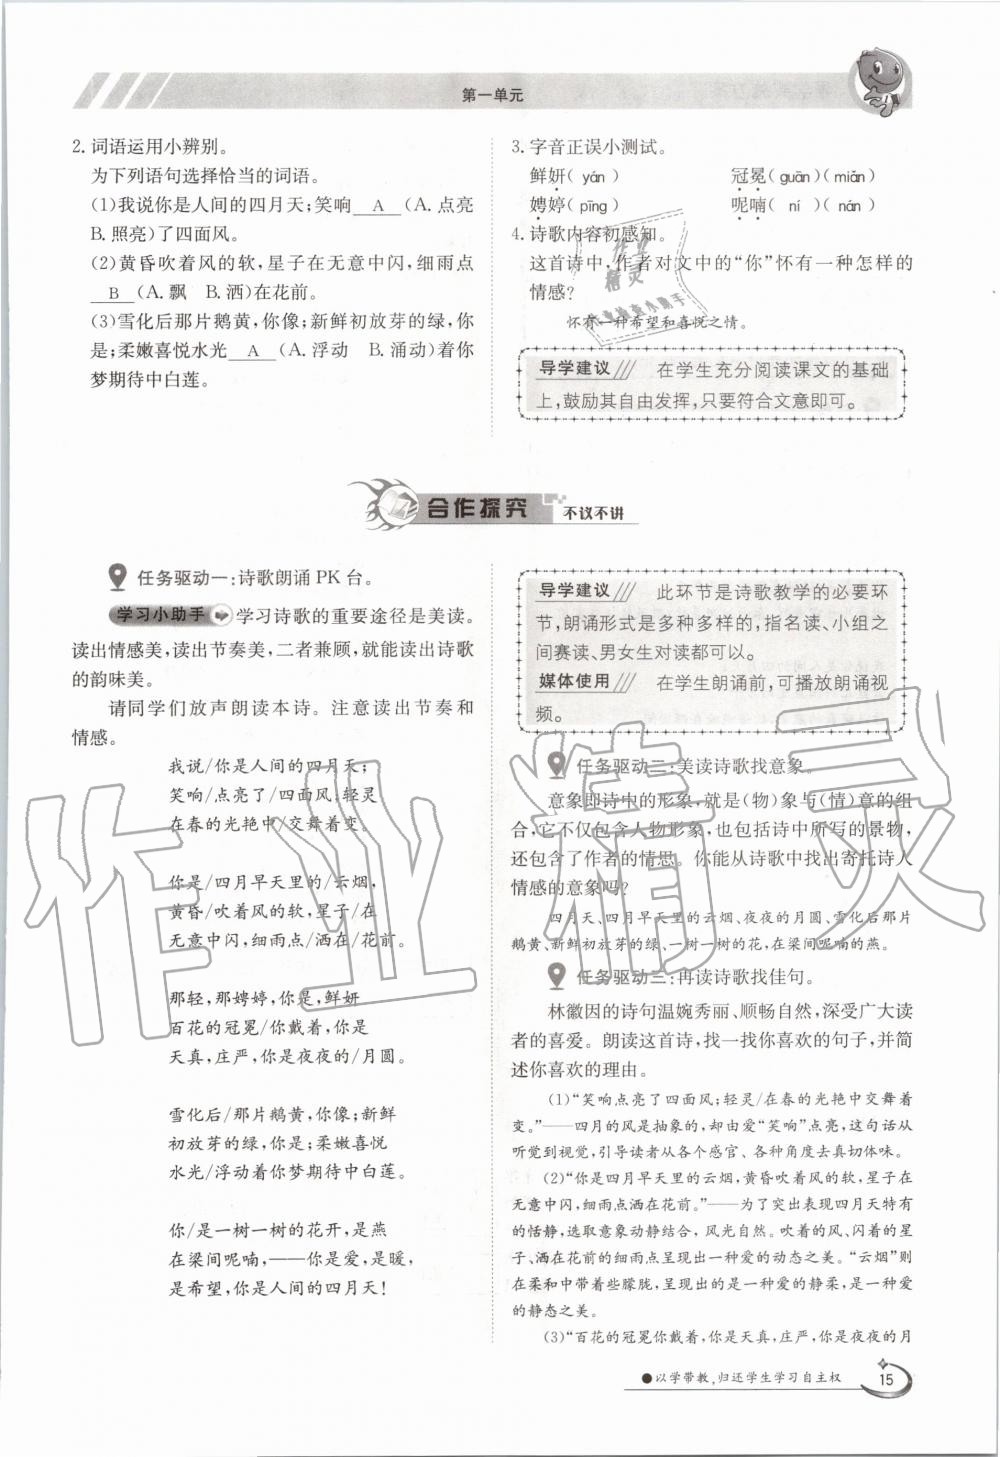 第一单元
2. 词语运用小辨别。
为下列语句选择恰当的词语。
(1)我说你是人间的四月天;笑响 A (A. 点亮
B. 照亮)了四面风。
(2)黄昏吹着风的软,星子在无意中闪,细雨点
B (A. 飘 B. 洒)在花前。
(3)雪化后那片鹅黄,你像;新鲜初放芽的绿,你
是;柔嫩喜悦水光 A (A. 浮动 B. 涌动)着你
梦期待中白莲。
3. 字音正误小测试。
鲜妍( yán ) 冠冕( guān )( miǎn )
娉婷( pīng ) 呢喃( ní )( nán )
4. 诗歌内容初感知。
这首诗中,作者对文中的“你”怀有一种怎样的
情感?
怀有一种希望和喜悦之情。
导学建议 在学生充分阅读课文的基础
上,鼓励其自由发挥,只要符合文意即可。
合作探究 不议不讲
任务驱动一:诗歌朗诵 PK 台。
学习小助手 学习诗歌的重要途径是美读。
读出情感美,读出节奏美,二者兼顾,就能读出诗歌
的韵味美。
请同学们放声朗读本诗。注意读出节奏和
情感。
我说/你是人间的四月天;
笑响/点亮了/四面风;轻灵
在春的光艳中/交舞着变。
你是/四月早天里的/云烟,
黄昏/吹着风的软,星子/在
无意中闪,细雨点/洒在/花前。
那轻,那娉婷,你是,鲜妍
百花的冠冕/你戴着,你是
天真,庄严,你是夜夜的/月圆。
雪化后/那片鹅黄,你像;新鲜
初放芽的绿,你是;柔嫩喜悦
水光/浮动着你梦期待中白莲。
你/是一树一树的花开,是燕
在梁间呢喃,——你是爱,是暖,
是希望,你是人间的四月天!
导学建议 此环节是诗歌教学的必要环
节,朗诵形式是多种多样的,指名读、小组之
间赛读、男女生对读都可以。
媒体使用 在学生朗诵前,可播放朗诵视
频。
任务驱动二:美读诗歌找意象。
意象即诗中的形象,就是(物)象与(情)意的组
合,它不仅包含人物形象,也包括诗中所写的景物,
还包含了作者的情思。你能从诗歌中找出寄托诗人
情感的意象吗?
四月天、四月早天里的云烟、夜夜的月圆、雪化后那片
鹅黄、新鲜初放芽的绿、一树一树的花开、在梁间呢喃的燕。
任务驱动三:再读诗歌找佳句。
林徽因的诗句温婉秀丽、顺畅自然,深受广大读
者的喜爱。朗读这首诗,找一找你喜欢的句子,并简
述你喜欢的理由。
(1)“笑响点亮了四面风;轻灵/在春的光艳中交舞着
变。”——四月的风是抽象的,却由爱“笑响”点亮,这句话从
听觉到视觉,引导读者从各个感官、各种角度去真切体味。
(2)“你是四月早天里的云烟,黄昏吹着风的软,星子在
无意中闪,细雨点洒在花前。”——为了突出表现四月天特有
的恬静,选取意象动静结合,风光自然。吹着的风、闪着的星
子、洒在花前的细雨点呈现出一种爱的动态之美。“云烟”则
在柔和中带着些朦胧,呈现出的是一种爱的静柔,是一种爱
的静态之美。
(3)“百花的冠冕你戴着,你是天真,庄严,你是夜夜的月
●以学带教,归还学生学习自主权
15
作业精灵
作业
精灵
作业检查小助手